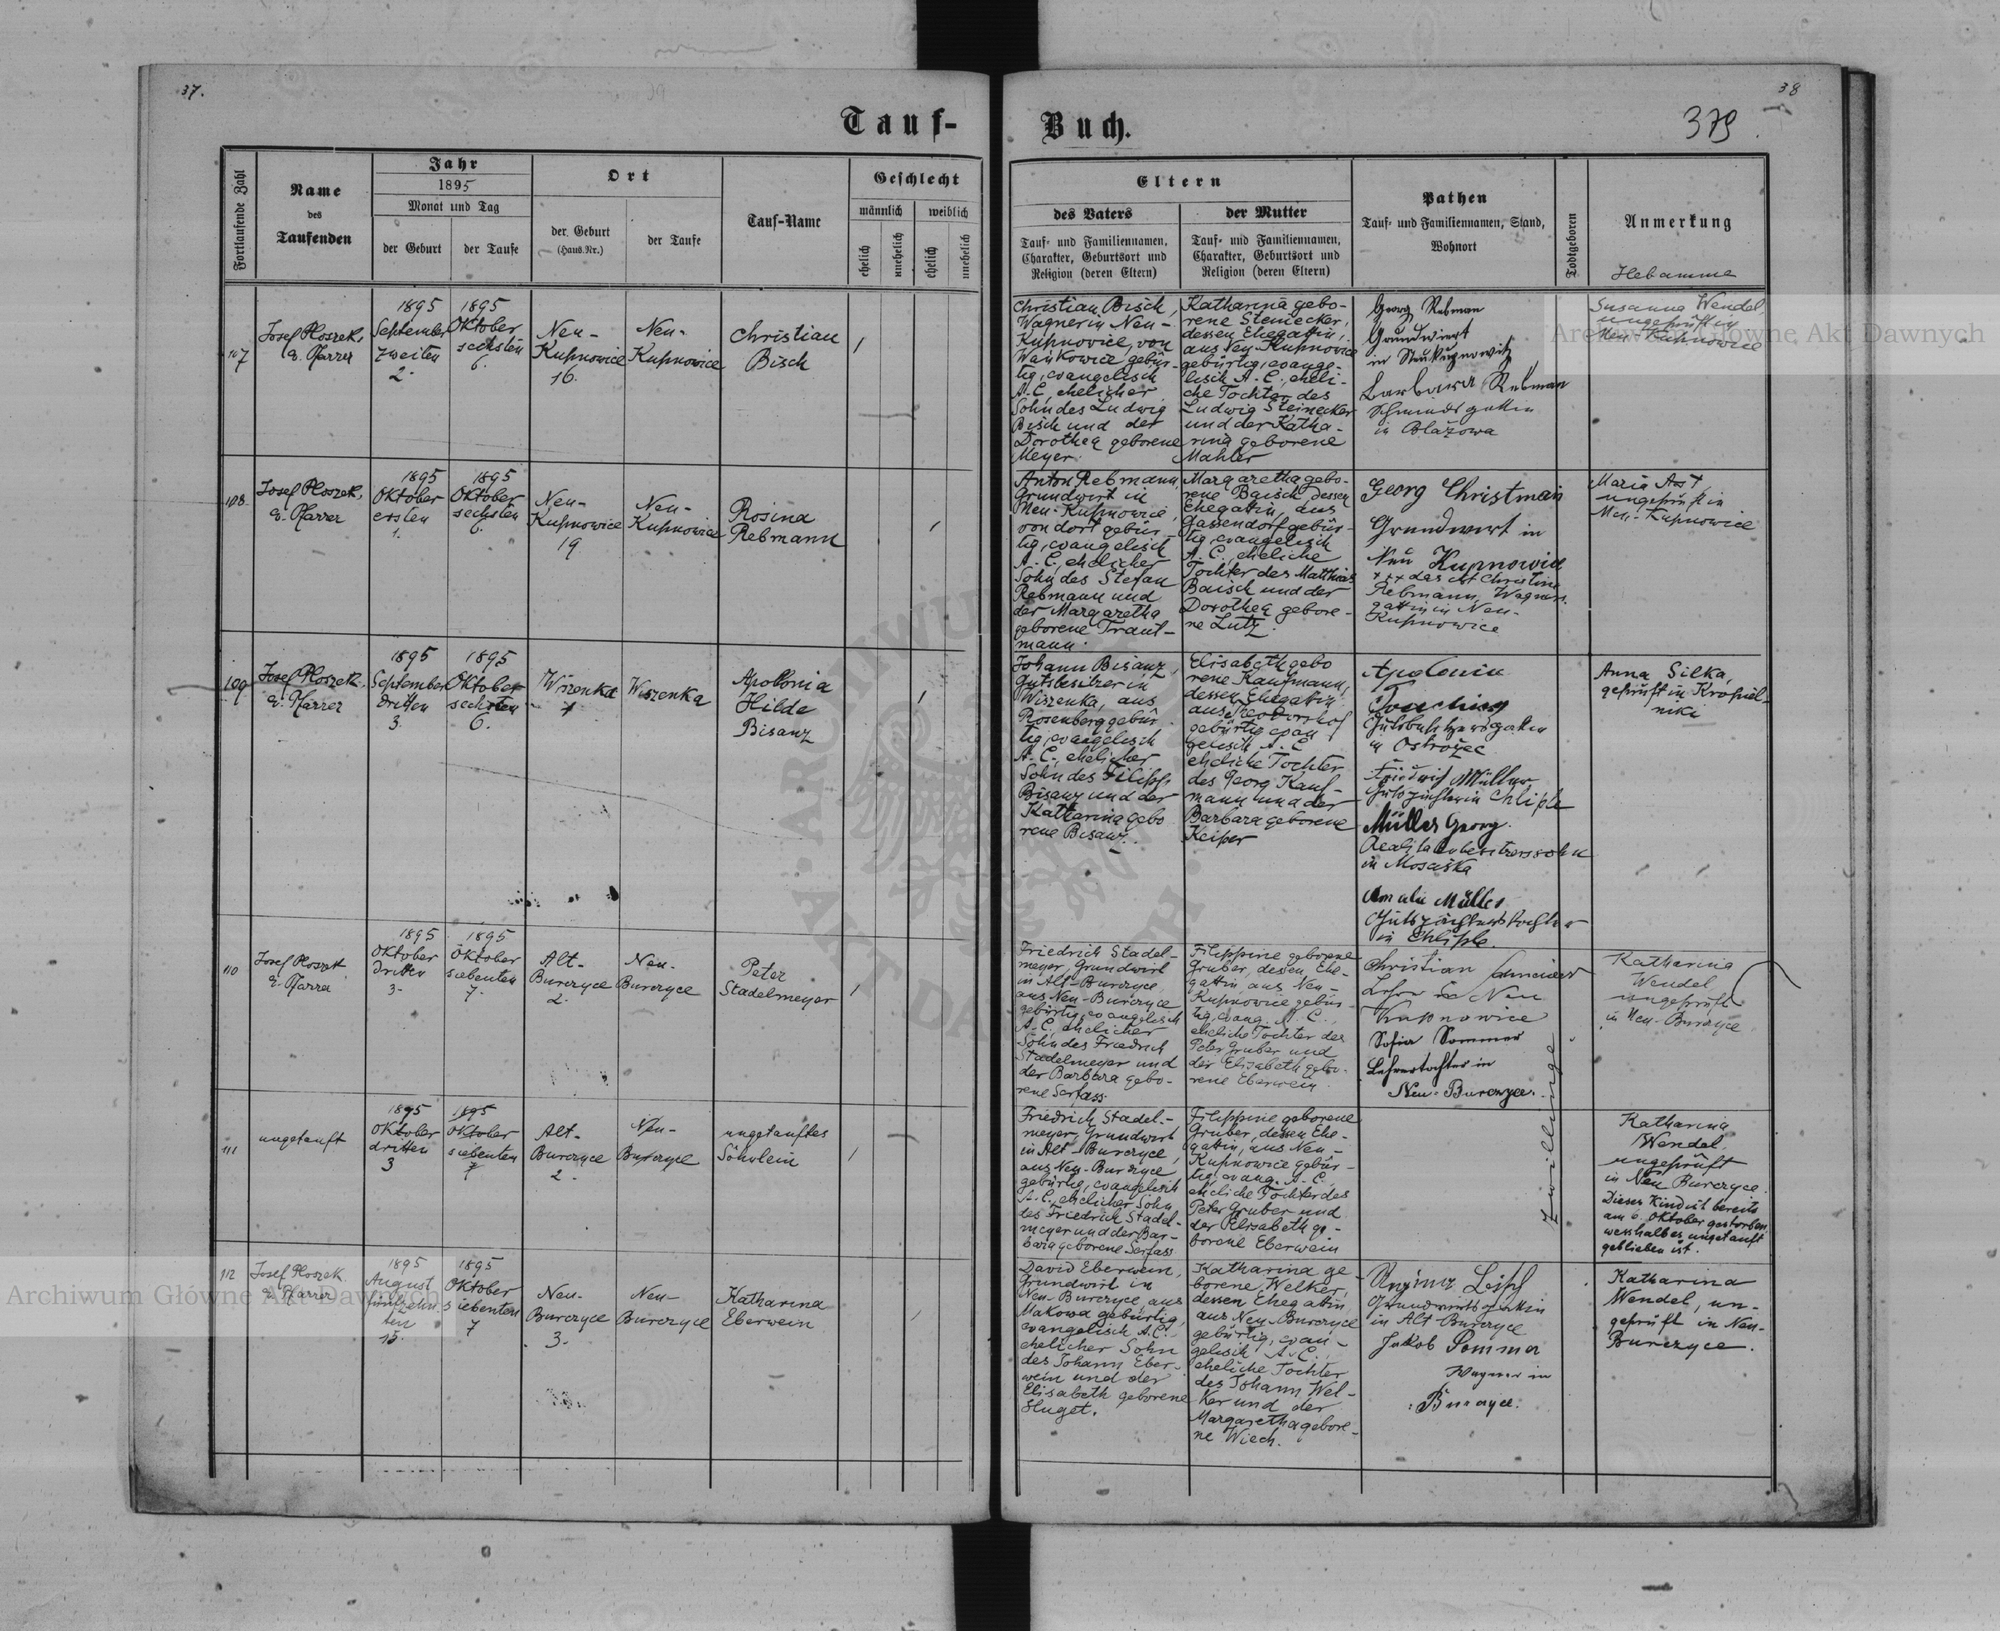 37.
38
379
Tauf-
Buch.
Fortlaufende Zahl
Name
des
Taufenden
Jahr
1895
Monat und Tag
der Geburt
der Taufe
Ort
der Geburt
(Haus.Nr.)
der Taufe
Tauf-Name
Geschlecht
männlich
weiblich
ehelich
unehelich
ehelich
unehelich
Eltern
des Vaters
Tauf- und Familiennamen,
Charakter, Geburtsort und
Religion (deren Eltern)
der Mutter
Tauf- und Familiennamen,
Charakter, Geburtsort und
Religion (deren Eltern)
Pathen
Tauf- und Familiennamen, Stand,
Wohnort
Todtgeboren
Anmerkung
Hebamme
107
Josef Ploszek,
e. Pfarrer
1895
September
zweiten
2.
1895
Oktober
sechsten
6.
Neu-
Kupnowice
16.
Neu-
Kupnowice
Christian
Bisch
/
Christian Bisch,
Wagner in Neu-
Kupnovice, von
Wankowice gebür-
tig, evangelisch
A.C., ehelicher
Sohn des Ludwig
Bisch und der
Dorothea geborene
Meyer.
Katharina gebo-
rene Steinecker,
dessen Ehegattin,
aus Neu-Kupnovice
gebürtig, evange-
lisch A.C., eheli-
che Tochter des
Ludwig Steinecker
und der Katha-
rina geborene
Mahler
Georg Rebman
Grundwirt
in Neukupnowitz
Barbara Rebman
Schmiedsgattin
in Blażowa
Susanna Wendel,
ungeprüft in
Neu-Kupnowice
108.
Josef Ploszek,
e. Pfarrer
1895
Oktober
ersten
1.
1895
Oktober
sechsten
6.
Neu-
Kupnowice
19
Neu-
Kupnowice
Rosina
Rebmann
/
Anton Rebmann,
Grundwirt in
Neu-Kupnowice,
von dort gebür-
tig, evangelisch
A.C., ehelicher
Sohn des Stefan
Rebmann und
der Margaretha
geborene Traut-
mann.
Margaretha gebo-
rene Baisch, dessen
Ehegattin, aus
Gassendorf gebür-
tig, evangelisch
A.C., eheliche
Tochter des Matthias
Baisch und der
Dorothea gebore-
ne Lutz.
Georg Christman
Grundwirt in
Neu Kupnowice
+++ das ist Christine
Rebmann, Wagners-
gattin in Neu-
Kupnowice
Maria Ast,
ungeprüft in
Neu-Kupnowice
109
Josef Ploszek,
e. Pfarrer
1895
September
dritten
3.
1895
Oktober
sechsten
6.
Wiszenka
1
Wiszenka
Apollonia
Hilde
Bisanz
/
Johann Bisanz,
Gutsbesitzer in
Wiszenka, aus
Rosenberg gebür
tig, evangelisch
A.C., ehelicher
Sohn des Filipp
Bisanz und der
Katharina gebo
rene Bisanz.
Elisabeth gebo
rene Kaufmann,
dessen Ehegattin,
aus Theodorshof
gebürtig evan
gelisch A.C.
eheliche Tochter
des Georg Kauf-
mann und der
Barbara geborene
Keiper
Apolonia
Gutsbesitzersgattin
in Ostrożec
Friedrich Müller
Gutspächter in Chliple
Müller Georg.
Realitätenbesitzerssohn
in Mosciska
Amalie Müller
Gutspächterstochter
in Chliple.
Anna Silka,
geprüft in Kropiel-
niki
110
Josef Ploszek
e. Pfarrer
1895
Oktober
dritten
3.
1895
Oktober
siebenten
7.
Alt-
Burczyce
2.
Neu-
Burczyce
Peter
Stadelmeyer
/
Friedrich Stadel-
meyer, Grundwirt
in Alt-Burczyce,
aus Neu-Burczyce
gebürtig, evangelisch
A.C., ehelicher
Sohn des Friedrich
Stadelmeyer und
der Barbara gebo-
rene Serfass.
Filippine geborene
Gruber, dessen Ehe-
gattin, aus Neu-
Kupnowice gebür-
tig, evang. A.C.,
eheliche Tochter des
Peter Gruber und
der Elisabeth gebo-
rene Eberwein.
Christian Schneider
Lehrer in Neu
Kupnowice
Sofia Sommer
Lehrerstochter in
Neu-Burczyce.
Zwillinge
Katharina
Wendel,
ungeprüft
in Neu-Burczyce.
111
ungetauft
1895
Oktober
dritten
3
1895
Oktober
siebenten
7
Alt-
Burczyce
2.
Neu-
Burczyce
ungetauftes
Söhnlein
/
Friedrich Stadel-
meyer, Grundwirt
in Alt-Burczyce,
aus Neu-Burczyce
gebürtig, evangelisch
A.C., ehelicher Sohn
des Friedrich Stadel-
meyer und der Bar-
bara geborene Serfass
Filippine geborene
Gruber, dessen Ehe-
gattin, aus Neu-
Kupnowice gebür-
tig, evang. A.C.,
eheliche Tochter des
Peter Gruber und
der Elisabeth ge-
borene Eberwein
Katharina
Wendel
ungeprüft
in Neu Burczyce.
Dieses Kind ist bereits
am 6. Oktober gestorben,
wesshalb es ungetauft
geblieben ist.
112
Josef Ploszek
e. Pfarrer
1895
August
fünfzehn
ten
15.
1895
Oktober
siebenten
7
Neu-
Burczyce
3.
Neu-
Burczyce
Katharina
Eberwein
/
David Eberwein,
Grundwirt in
Neu-Burczyce, aus
Makowa gebürtig,
evangelisch A.C.,
ehelicher Sohn
des Johann Eber-
wein und der
Elisabeth geborene
Huget.
Katharina ge
borene Welker,
dessen Ehegattin,
aus Neu-Burczyce
gebürtig, evan-
gelisch A.C.,
eheliche Tochter
des Johann Wel-
ker und der
Margaretha gebore-
ne Wiech.
Grundwirtsgattin
in Alt Burczyce
Jakob Sommer
Wagner in
Burczyce.
Katharina
Wendel, un-
geprüft in Neu-
Burczyce.
Archiwum Główne Akt Dawnych
Archiwum Główne Akt Dawnych